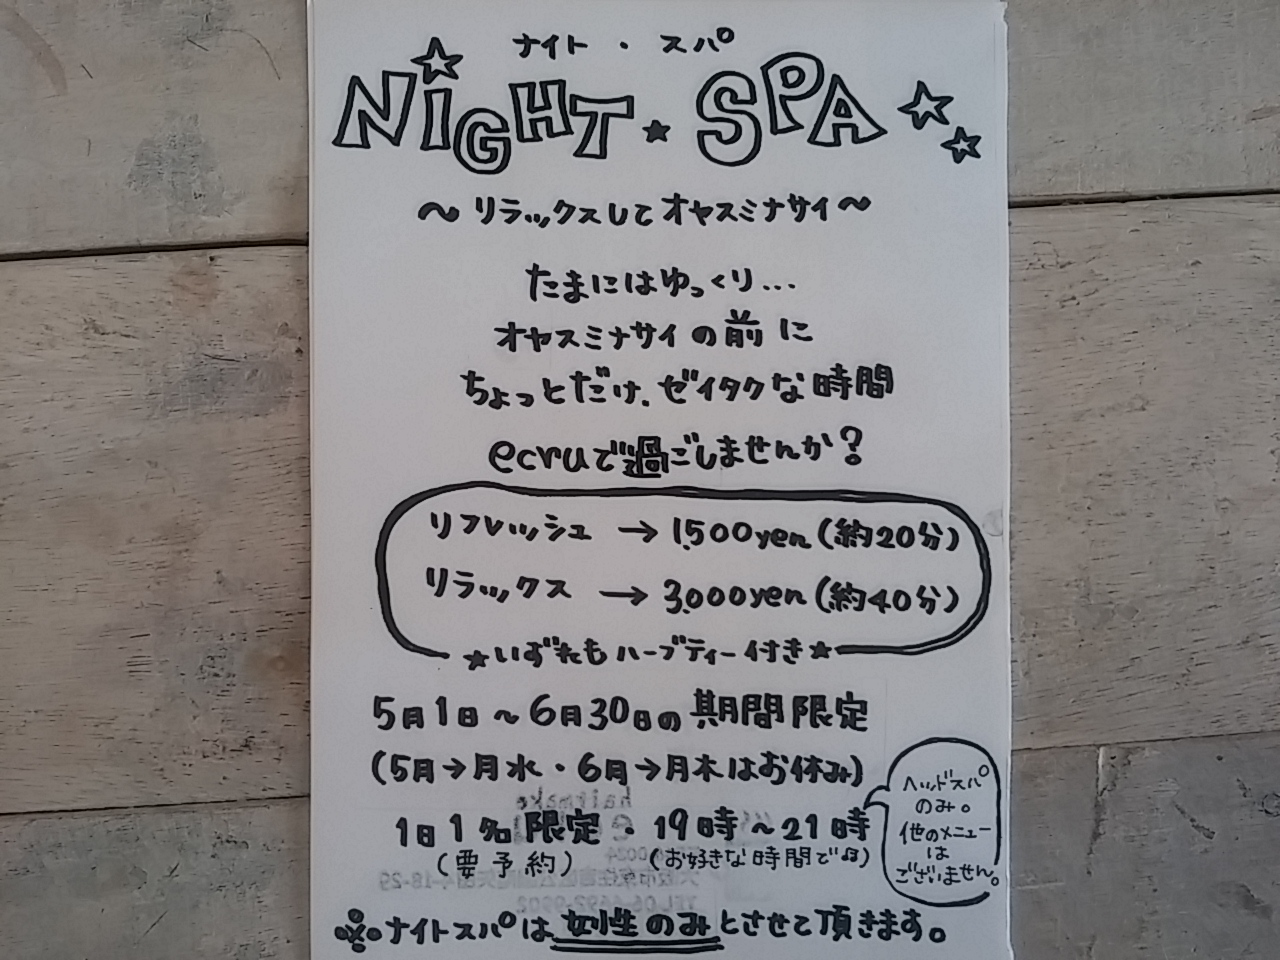 ナイト・スパ
NiGHT★SPA
～リラックスしてオヤスミナサイ～
たまにはゆっくり...
オヤスミナサイの前に
ちょっとだけ、ゼイタクな時間
ecruで過ごしませんか?
リフレッシュ → 1,500yen(約20分)
リラックス → 3,000yen(約40分)
★いずれもハーブティー付き★
5月1日～6月30日の期間限定
(5月→月水・6月→月木はお休み)
1日1名限定・19時～21時
(要予約)
(お好きな時間で♫)
ヘッドスパ
のみ。
他のメニュー
は
ございません。
※ナイトスパは女性のみとさせて頂きます。
hairmake
TEL 06-6692-9902